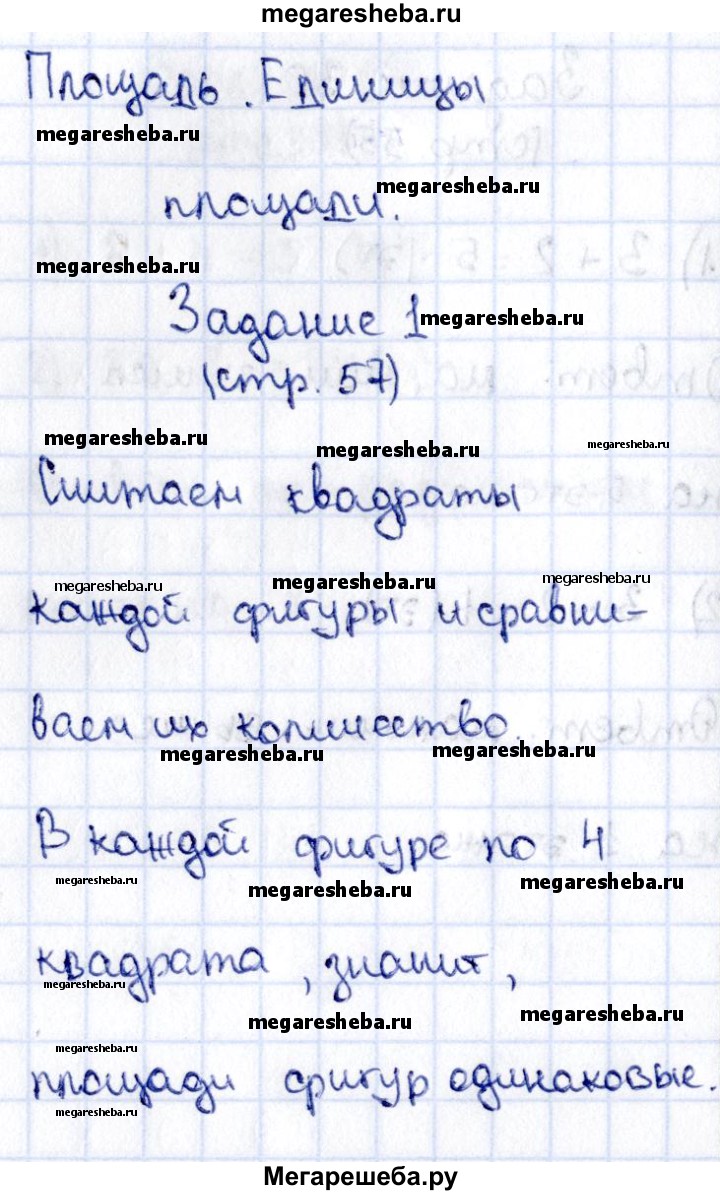 megaresheba.ru
Площадь. Единицы
megaresheba.ru
megaresheba.ru
площади.
megaresheba.ru
Задание 1
megaresheba.ru
(стр. 57)
megaresheba.ru
megaresheba.ru
megaresheba.ru
Считаем квадраты
megaresheba.ru
megaresheba.ru
megaresheba.ru
каждой фигуры и сравни-
ваем их количество.
megaresheba.ru
megaresheba.ru
В каждой фигуре по 4
megaresheba.ru
megaresheba.ru
megaresheba.ru
квадрата, значит,
megaresheba.ru
megaresheba.ru
megaresheba.ru
megaresheba.ru
площади фигур одинаковые.
megaresheba.ru
Мегарешеба.ру